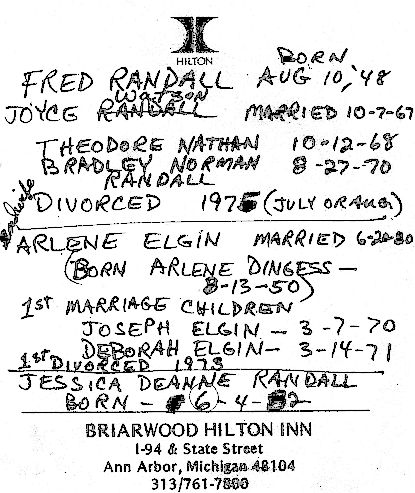 HILTON
BORN
FRED RANDALL AUG 10, '48
WATSON
JOYCE RANDALL MARRIED 10-7-67
THEODORE NATHAN 10-12-68
BRADLEY NORMAN 8-27-70
RANDALL
DIVORCED 1975 (JULY OR AUG)
ARLENE ELGIN MARRIED 6-20-80
(BORN ARLENE DINGESS —
8-13-50)
1ST MARRIAGE CHILDREN
JOSEPH ELGIN — 3-7-70
DEBORAH ELGIN — 3-14-71
1ST DIVORCED 1973
JESSICA DEANNE RANDALL
BORN — 6-4-82
BRIARWOOD HILTON INN
I-94 & State Street
Ann Arbor, Michigan 48104
313/761-7800